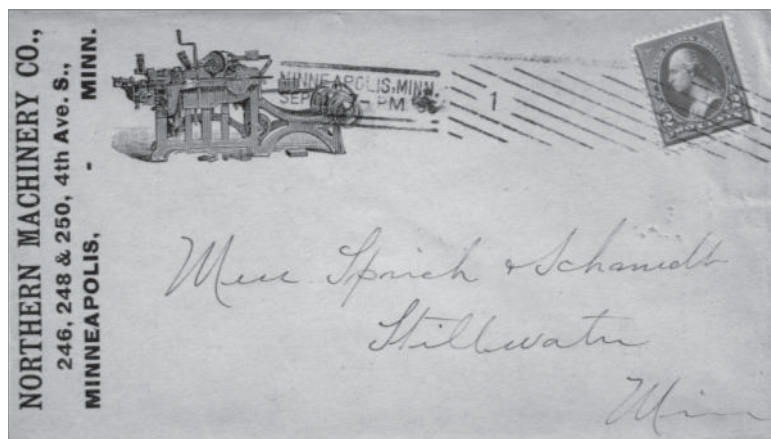 NORTHERN MACHINERY CO.,
246, 248 & 250, 4th Ave. S.,
MINNEAPOLIS, - MINN.
MINNEAPOLIS, MINN.
SEP - PM
1
& Schamedt
Stillwater
Minn